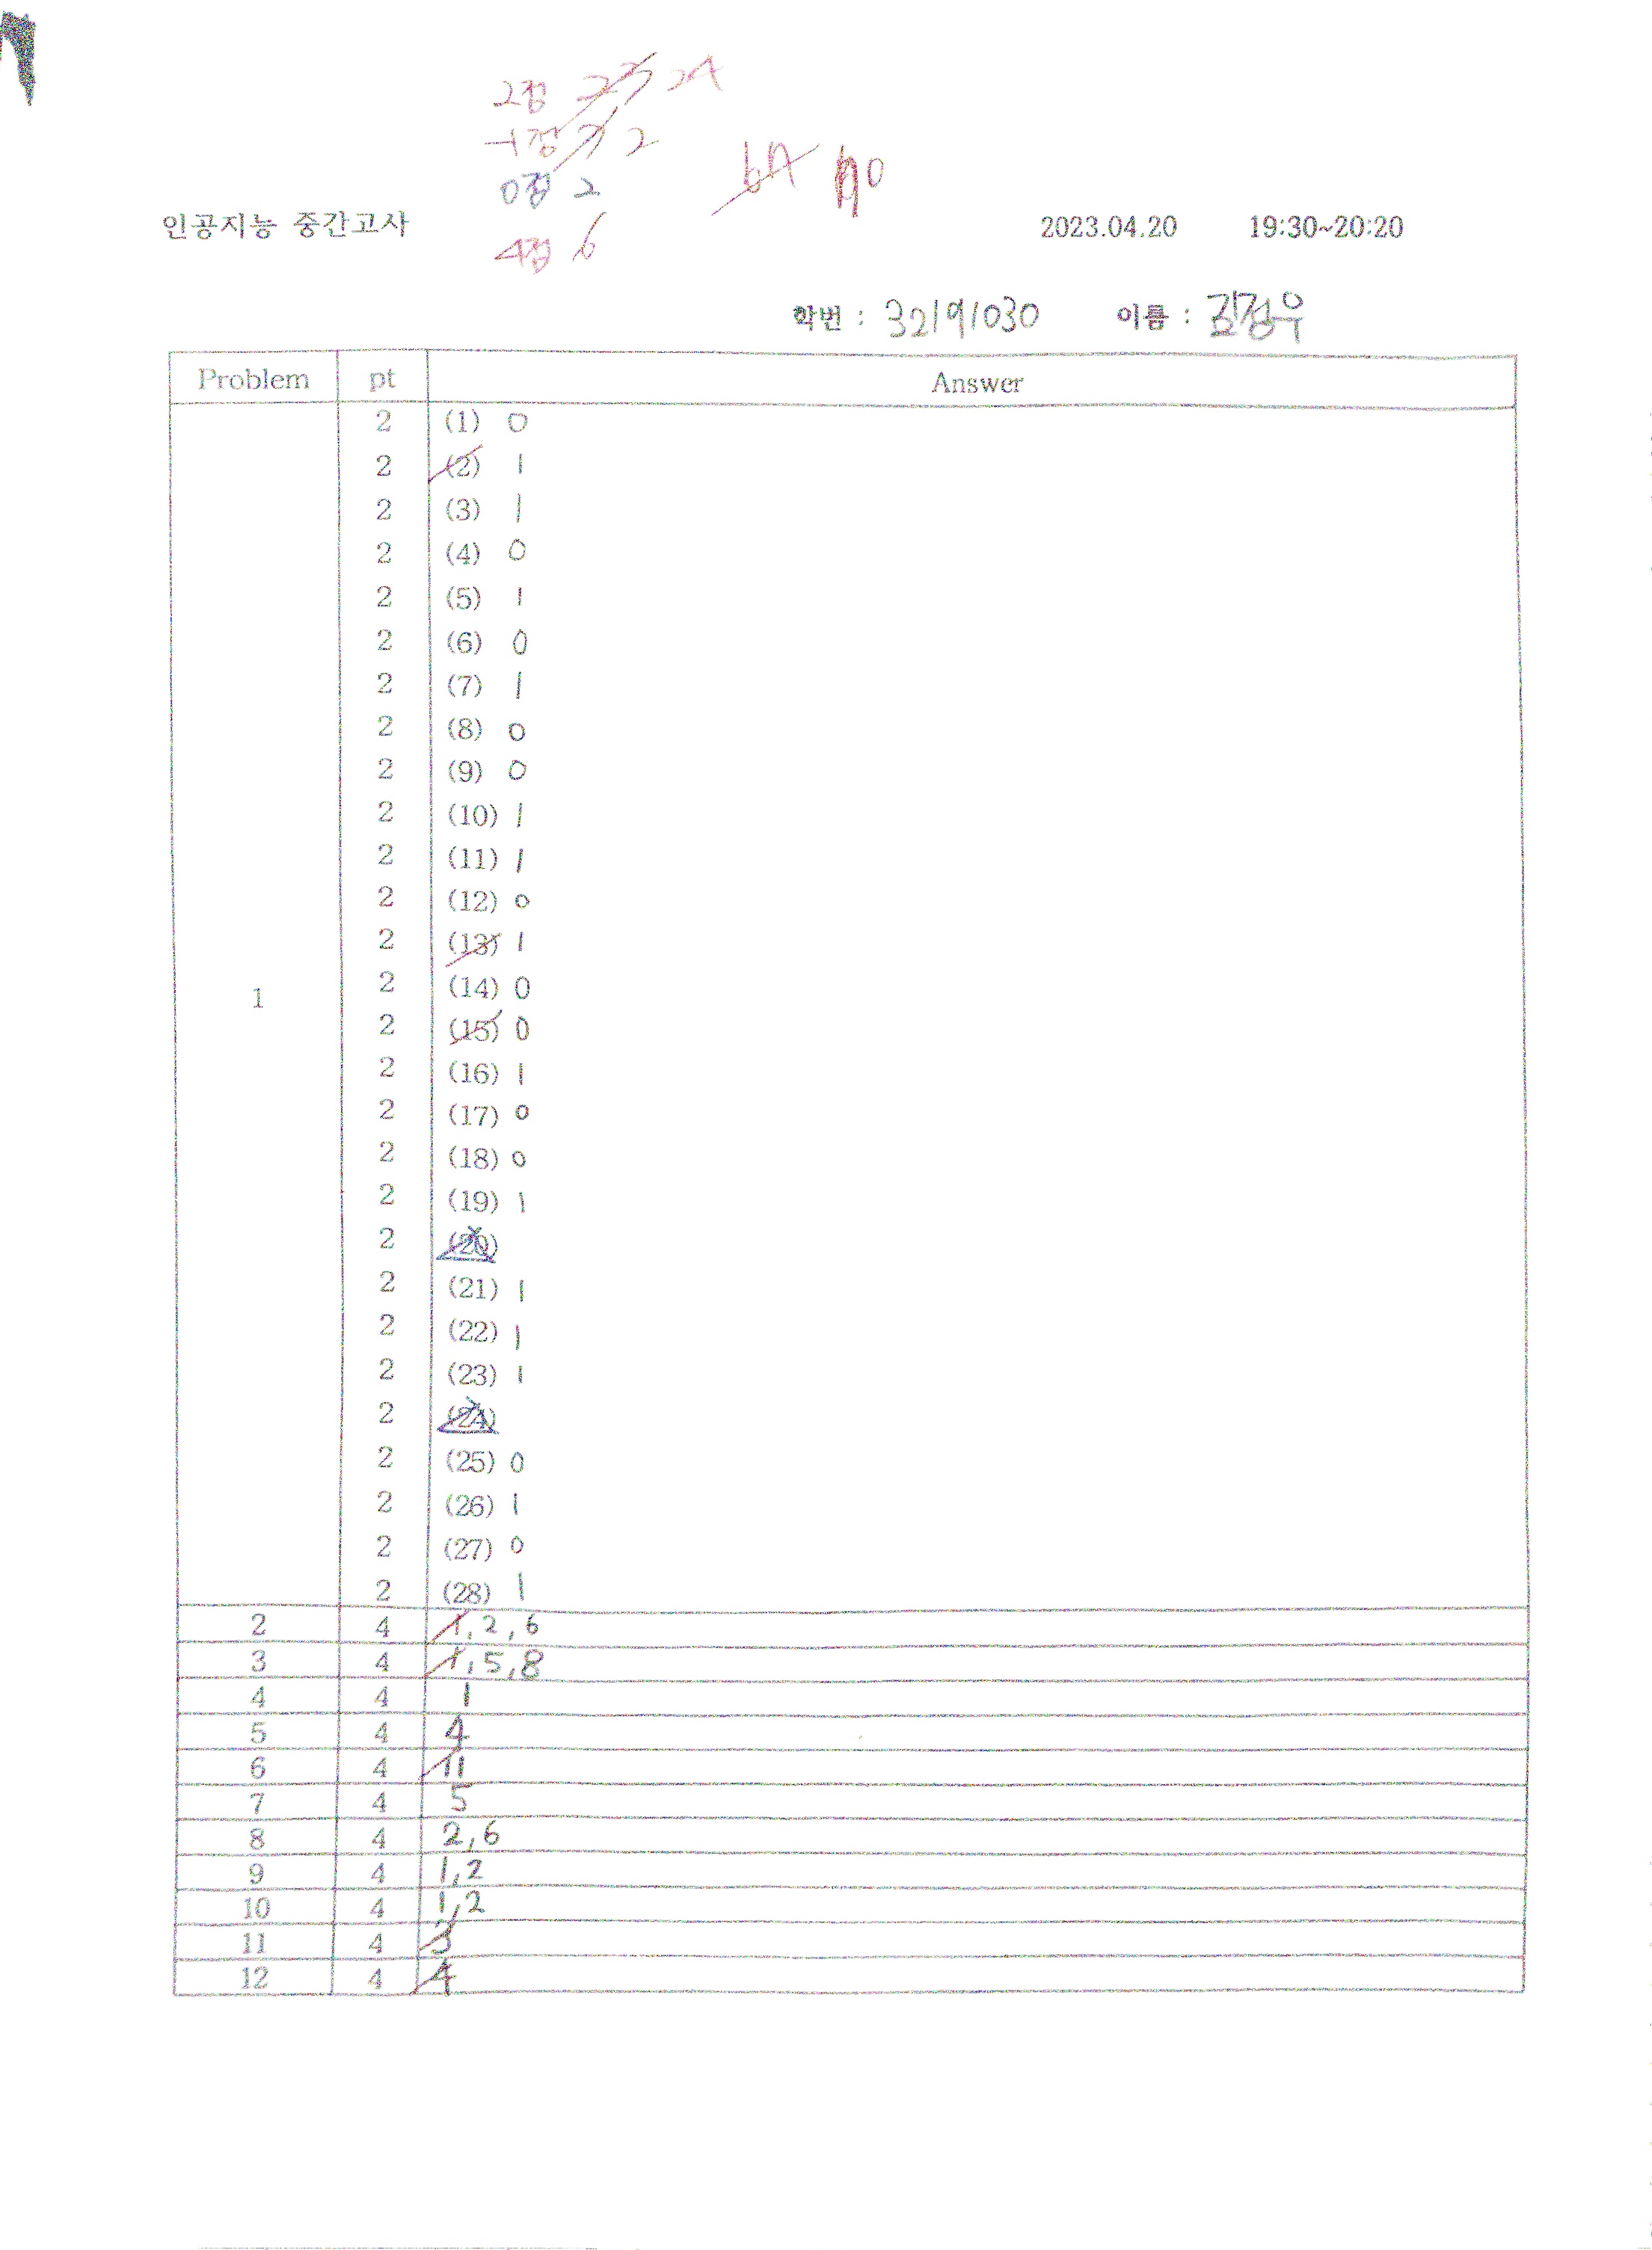 2점 23 24
-1점 3 2
0점 2
67 70
인공지능 중간고사 2023.04.20 19:30~20:20
4점 6
학번 : 32191030 이름 : 김정우
Problem pt Answer
2 (1) 0
2 (2) 1
2 (3) 1
2 (4) 0
2 (5) 1
2 (6) 0
2 (7) 1
2 (8) 0
2 (9) 0
2 (10) 1
2 (11) 1
2 (12) 0
2 (13) 1
1 2 (14) 0
2 (15) 0
2 (16) 1
2 (17) 0
2 (18) 0
2 (19) 1
2 (20)
2 (21) 1
2 (22) 1
2 (23) 1
2 (24)
2 (25) 0
2 (26) 1
2 (27) 0
2 (28) 1
2 4 1, 2, 6
3 4 1, 5, 8
4 4 1
5 4 4
6 4 11
7 4 5
8 4 2, 6
9 4 1, 2
10 4 1, 2
11 4 3
12 4 4